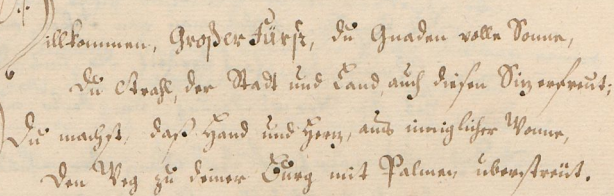 Willkommen, Großer Fürst, du Gnaden volle Sonne,
Du Strahl, der Stadt und Land auch diesen Sitz erfreut;
Du machst, daß Hand und Herz, aus inniglicher Wonne,
Den Weg zu deiner Burg mit Palmen uberstreut.